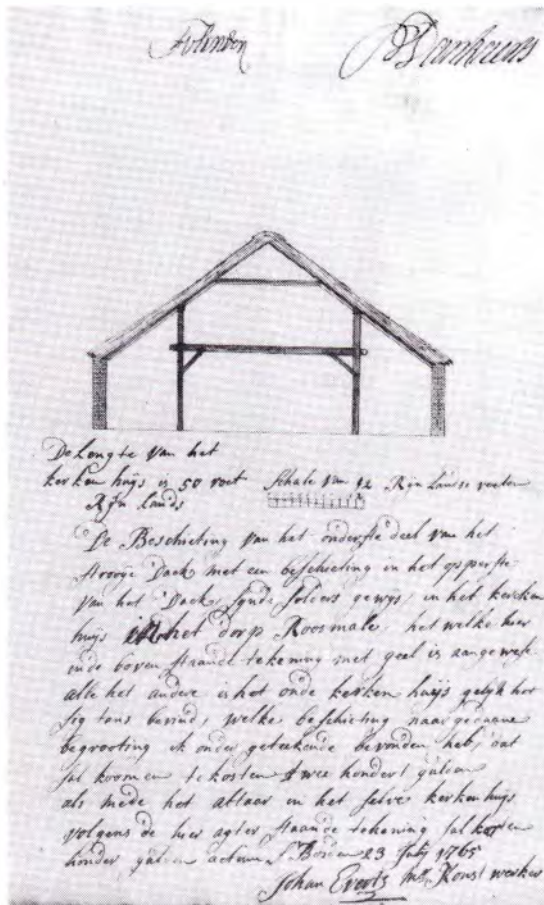 De Lengte van het
kerken huÿs is 50 voet Schale van 12 Rÿn landse voeten
Rÿn lands
De Beschieting van het onderste deel van het
strooÿe Dack met een beschieting in het opperste
van het Dack, synde solders gewÿs, in het kerken
huÿs in het dorp Roosmale, het welke hier
in de boven staande tekening met geel is aangewese
alle het andere is het oude kerken huÿs gelÿk het
sig tans bevind, welke beschieting naar gedaane
begrooting ik onder geteekende bevonden heb, dat
sal koomen te kosten twee hondert gulden
als mede het altaar in het selve kerkenhuÿs
volgens de hier agter staande tekening sal kosten
hondert gulden actum 23 Julÿ 1765
Johan Everts Mr. Konst werker